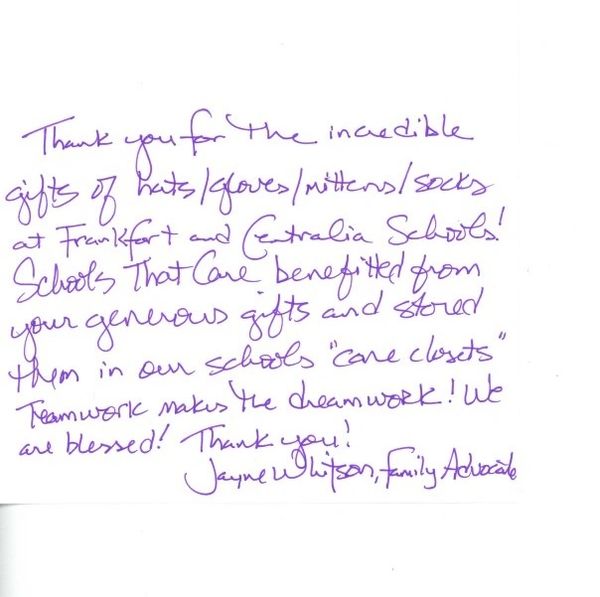 Thank you for the incredible
gifts of hats/gloves/mittens/socks
at Frankfort and Centralia Schools!
Schools That Care benefitted from
your generous gifts and stored
them in our schools "care closets"
Teamwork makes the dreamwork! We
are blessed! Thank you!
Jayne Whitson, Family Advocate